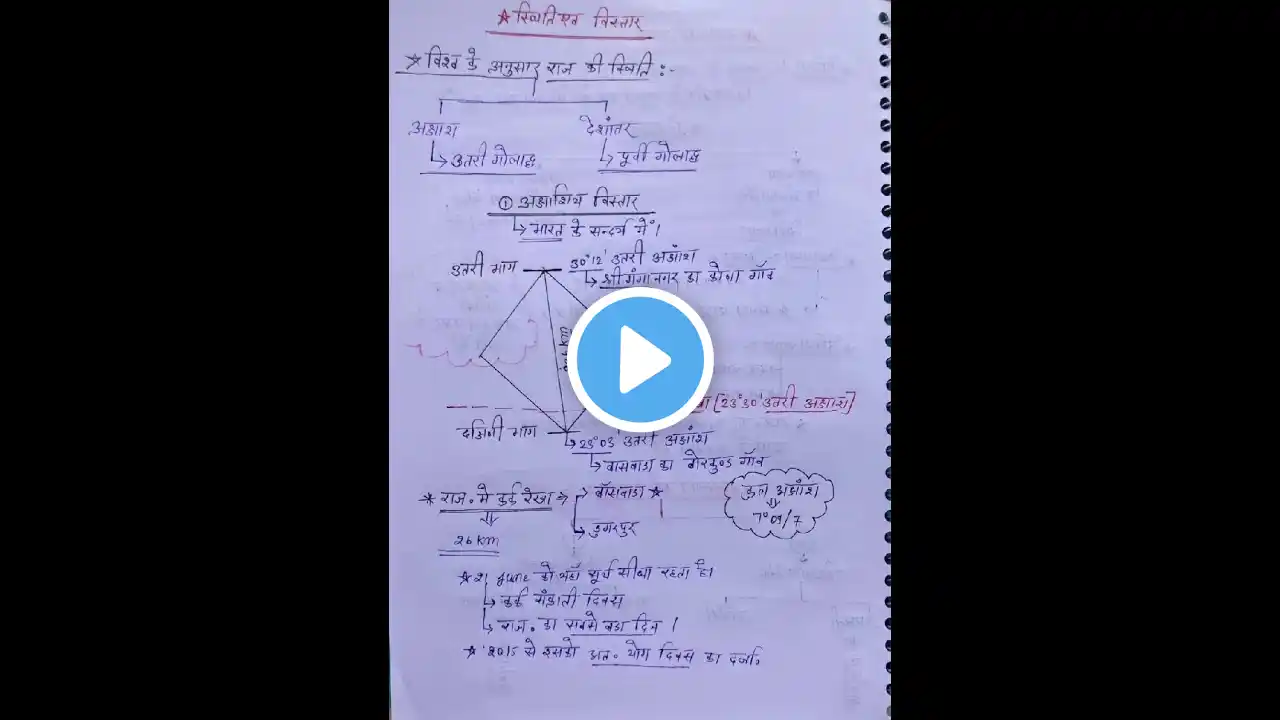 ★ स्थिति एवं विस्तार
★ विश्व के अनुसार राज की स्थिति :-
अक्षांश
देशांतर
↳ उतरी गोलाद्ध
↳ पूर्वी गोलाद्ध
① अक्षांशिय विस्तार
↳ भारत के सन्दर्भ में।
उतरी भाग
30°12' उतरी अक्षांश
↳ श्री गंगानगर का कोणा गाँव
[23°30' उतरी अक्षांश]
दक्षिणी भाग
↳ 23°03' उतरी अक्षांश
↳ बासवाडा का बोरकुण्ड गाँव
★ राज. मे कर्क रेखा ⇒
→ बाँसवाडा ★
→ डुगरपुर
26 km
कुल अक्षांश
7°09'/7
★ 21 June को यहाँ सूर्य सीधा रहता है।
↳ कर्क संक्राती दिवस
↳ राज. का सबसे बडा दिन।
★ 2015 से इसको अन्त. योग दिवस का दर्जा.